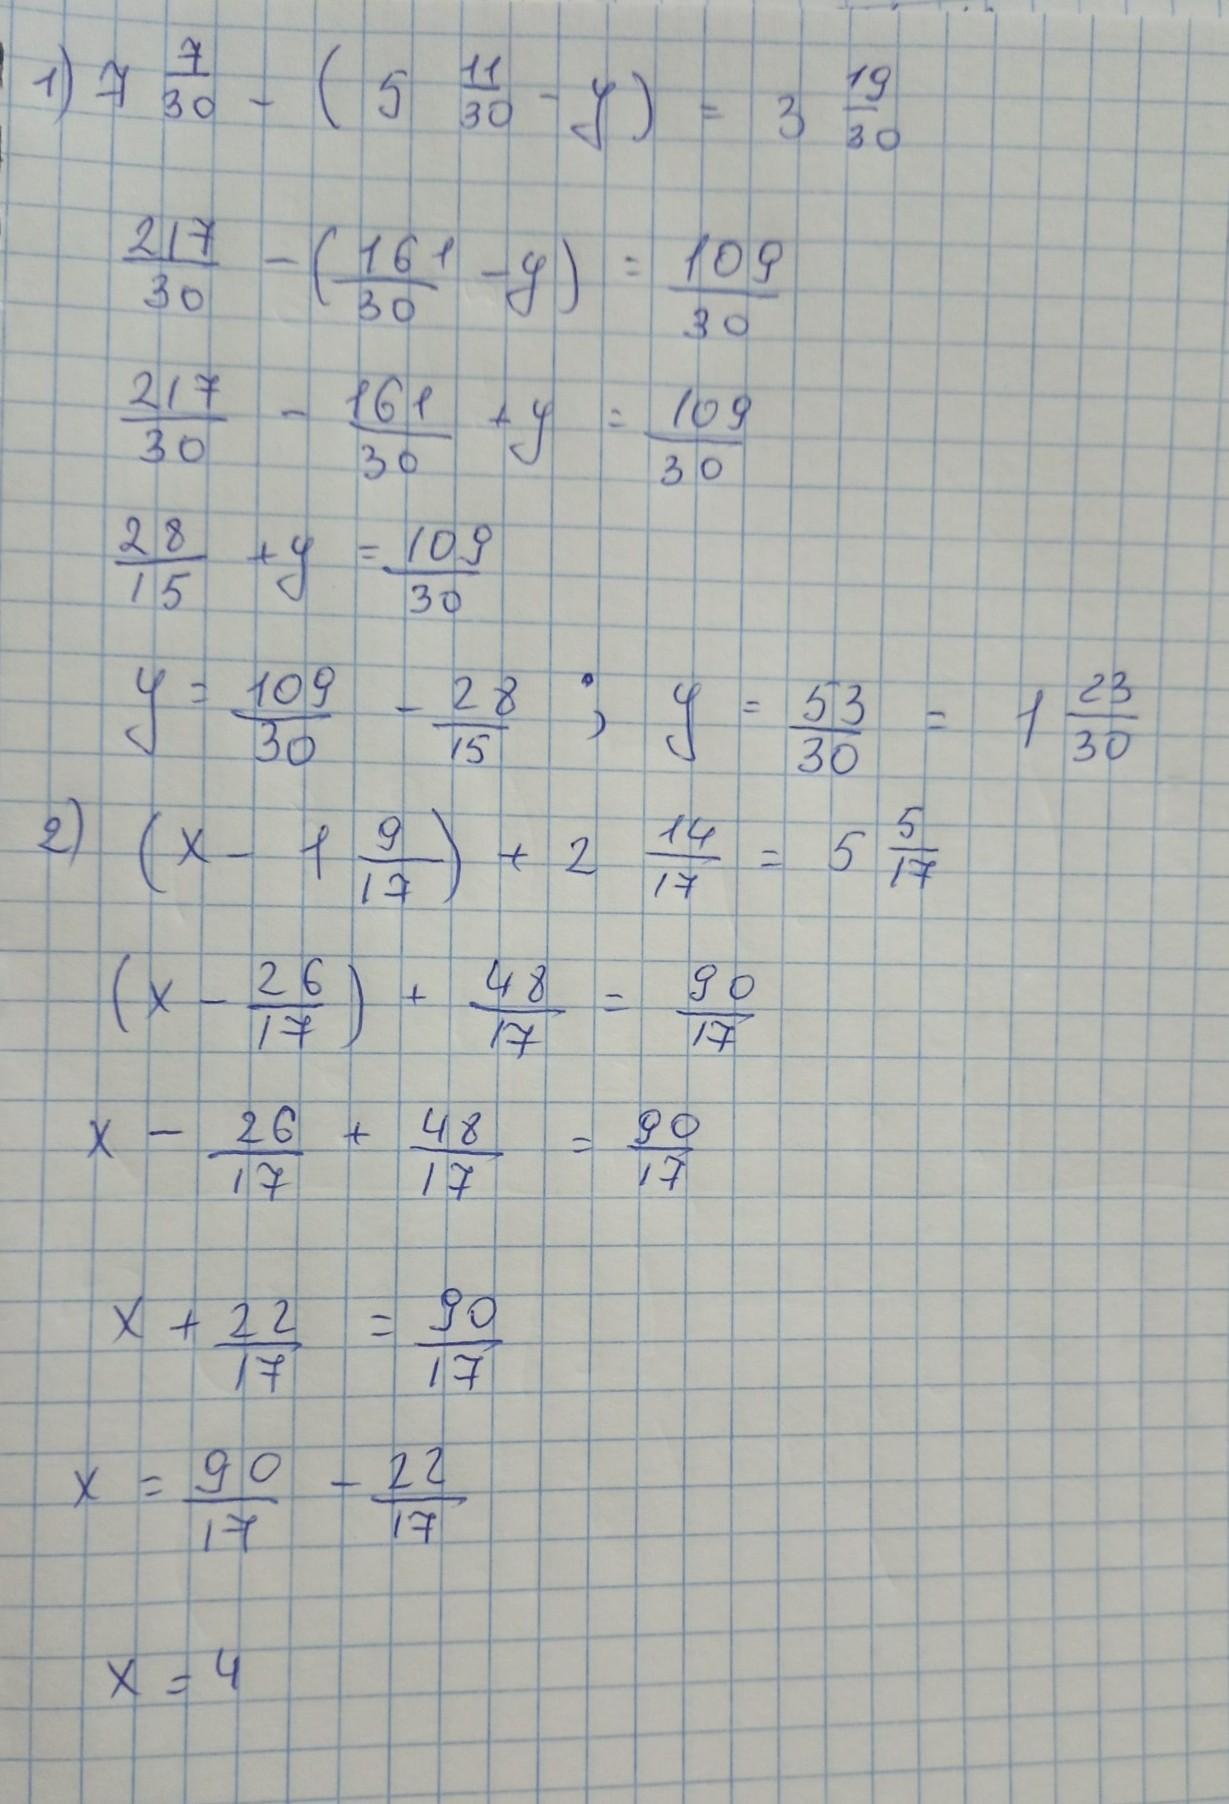 1) 7 7/30 - (5 11/30 - y) = 3 19/30
217/30 - (161/30 - y) = 109/30
217/30 - 161/30 + y = 109/30
28/15 + y = 109/30
y = 109/30 - 28/15 ; y = 53/30 = 1 23/30
2) (x - 1 9/17) + 2 14/17 = 5 5/17
(x - 26/17) + 48/17 = 90/17
x - 26/17 + 48/17 = 90/17
x + 22/17 = 90/17
x = 90/17 - 22/17
x = 4